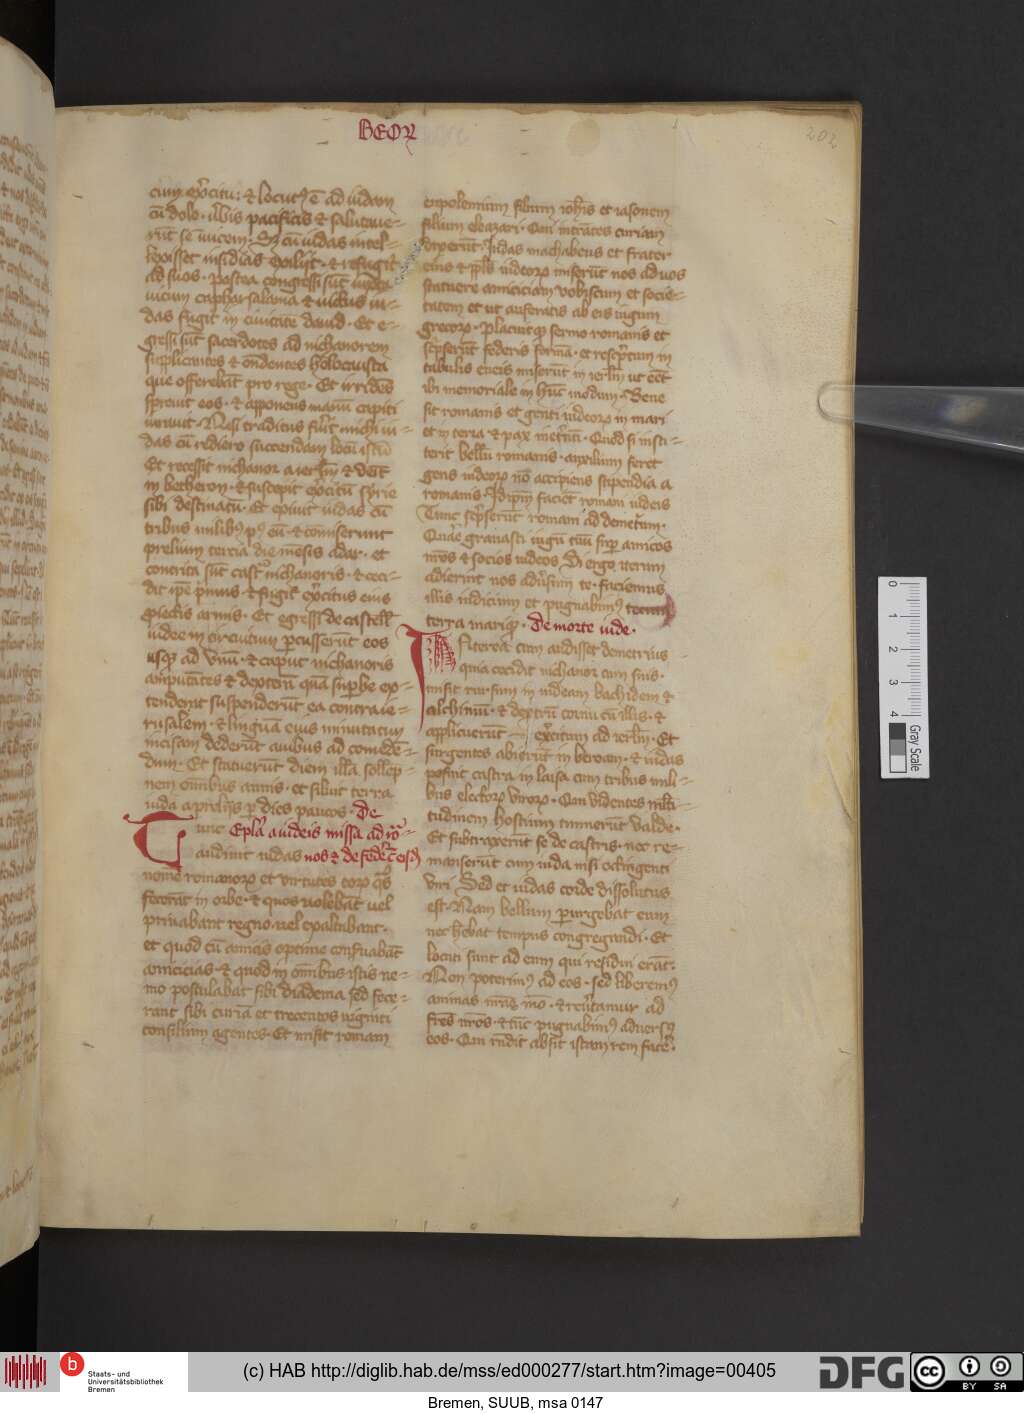 BEOR
202
cum exꝰcitu: ⁊ locutꝰ ē ad iudam
cū dolo · ūbis pacificis ⁊ salutaue-
rūt se inuicem · Sꝫ cū iudas intel-
lexisset insidias exiliit · ⁊ refugit
ad suos · postea congressi sūt iuxta
uicum capharsalama ⁊ uictus iu-
das fugit in ciuitatē dauid · Et e-
gressi sūt sacerdotes ad nichanorem
supplicantes ⁊ ondentes holocausta
que offerebāt pro rege · Et irridēs
spreuit eos · ⁊ apponens manū capiti
iurauit · Nisi traditus fuīt michi iu-
das cū redierо succendam locū istū
Et recessit nichanor a ierlm ⁊ uēit
in betheron · ⁊ suscepit exꝰcitū syrie
sibi destinatū · Et exiuit iudas cū
tribus milibꝰ ꝯ eū · ⁊ commiserunt
prelium tercia die mēsis adar · et
contrita sūt castͣ nichanoris · ⁊ ceci-
dit ipē pͥmus · ⁊ fugit exꝰcitus eius
proiectis armis · Et egressi de castell
iudee in circuitum ꝑcusserūt eos
usqꝫ ad vnū · ⁊ caput nichanoris
amputātes ⁊ dexterā quā supꝰbe ex-
tenderat suspenderūt ea contra ie-
rusalem · ⁊ linguā eius minutatim
incisam dederūt auibus ad comedē-
dum · Et statuerūt diem illā sollep-
nem omībus annis · et siluit terra
iuda a prelijs ꝑ dies paucos · De
Tunc Epła a iudeis missa ad rō-
audiuit iudas nos ⁊ de federe eisꝫ
nomē romanoꝝ et virtutes eoꝝ qͣs
fecerāt in orbe · ⁊ quos uolebāt uel
priuabant regno uel exaltabant ·
et quod cū amicis optime conseruabāt
amicicias · ⁊ quod in omībus istis ne-
mo postulabat sibi diadema sed fece-
rant sibi curiā et trecentos uiginti
consilium agentes · Et misit romam
eupolemum filium ioħis et iasonem
filium eleazari · Qui intrātes curiam
dixerūt · Judas machabeus et frater
eius ⁊ ppłs iudeoꝝ miserūt nos ad uos
statuere amiciciam vobiscum et socie-
tatem et ut auferatis ab eis iugum
grecoꝝ · placuitqꝫ sermo romanis et
scͥpserūt federis formā · et rescͥptum in
tabulis eneis miserūt in ierłm ut eēt
ibi memoriale in hūc modum · Bene
sit romanis et genti iudeoꝝ in mari
et in terra ⁊ pax inetͥnū · Quod si insti-
terit bellū romanis · auxilium feret
gens iudeoꝝ nō accipiens stipendia a
romanis · Idipsm faciēt romani iudeis
Tunc scͥpserūt romani ad demetͥum ·
Quare grauasti iugū tuū suꝑ amicos
nr̄os ⁊ socios iudeos Si ergo iterum
adierint nos aduͥsum te · faciemus
illis iudicium et pugnabimꝰ tecum
terra mariqꝫ · De morte iude ·
Interea cum audisset demetrius
quia cecidit nichanor cum suis ·
misit rursum in iudeam bachidem ⁊
alchimū · ⁊ dextrū cornu cū illis · ⁊
applicuerūt exꝰcitum ad ierłm · Et
surgentes abierūt in beream · ⁊ iudas
posuit castra in laisa cum tribus mili-
bus electoꝝ viroꝝ · Qui videntes mlti-
tudinem hostium timuerūt valde ·
Et subtraxerūt se de castris · nec re-
manserūt cum iuda nisi octingenti
viri Sed et iudas corde dissolutus
est · Nam bellum ꝑurgebat eum
nec habebat tempus congregandi · Et
locuti sunt ad eum qui residui erāt ·
Non poterimꝰ ad eos · sed liberemꝰ
animas nr̄as mō · ⁊ reuͥtamur ad
fr̄es nr̄os · ⁊ tūc pugnabimꝰ aduersꝫ
eos · Qui rn̄dit absit istam rem facēͥ ·
0
1
2
3
4
Gray Scale
b Staats- und
Universitätsbibliothek
Bremen
(c) HAB http://diglib.hab.de/mss/ed000277/start.htm?image=00405
DFG
cc BY SA
Bremen, SUUB, msa 0147